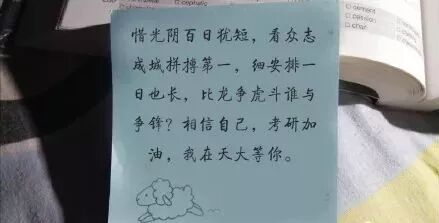 惜光阴百日犹短，看众志
成城拼搏第一，细安排一
日也长，比龙争虎斗谁与
争锋？相信自己，考研加
油，我在天大等你。
cephalic
cement
cession
chef